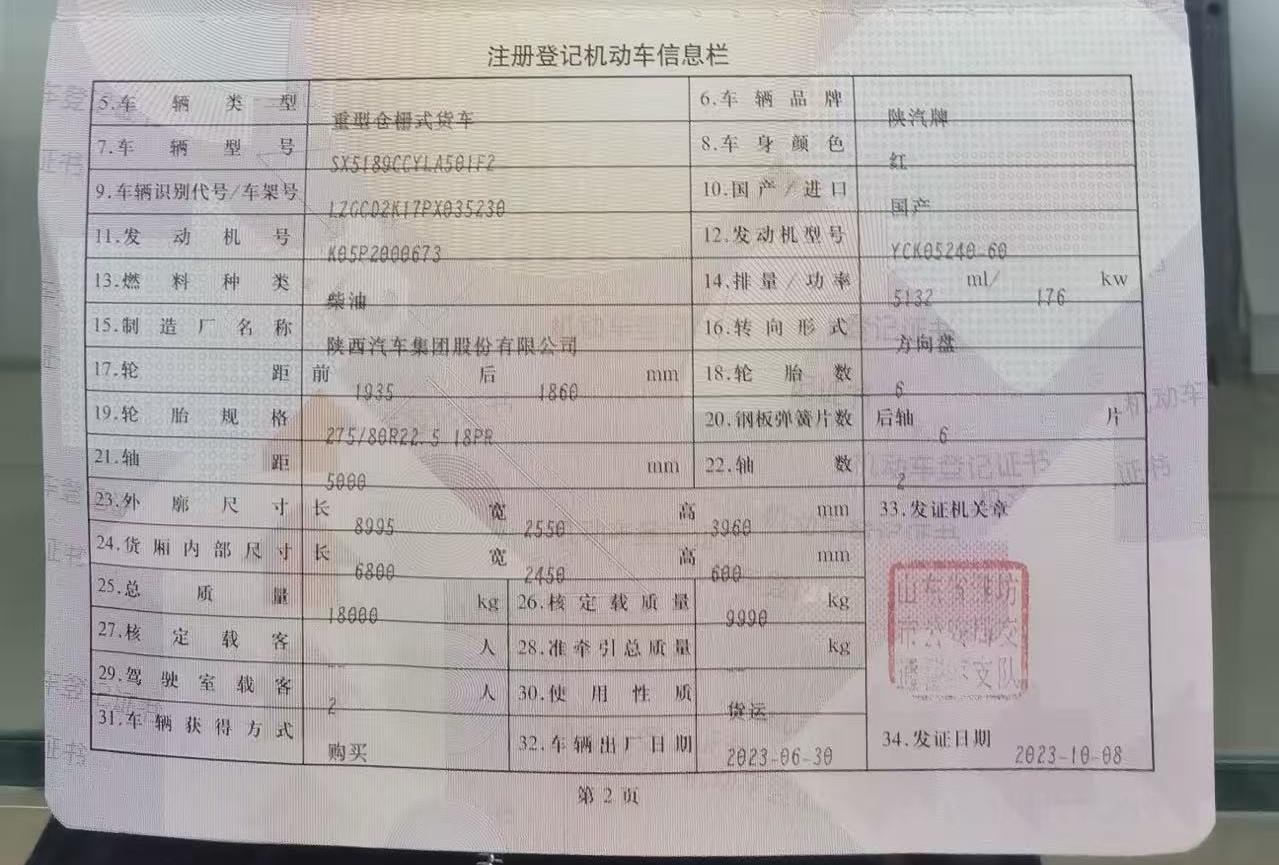 注册登记机动车信息栏
5.车辆类型 重型仓栅式货车 6.车辆品牌 陕汽牌
7.车辆型号 SX5189CCYLA501F2 8.车身颜色 红
9.车辆识别代号/车架号 LZGCD2K17PX035230 10.国产/进口 国产
11.发动机号 K05P2000673 12.发动机型号 YCK05240-60
13.燃料种类 柴油 14.排量/功率 5132 ml/ 176 kw
15.制造厂名称 陕西汽车集团股份有限公司 16.转向形式 方向盘
17.轮距 前 1935 后 1860 mm 18.轮胎数 6
19.轮胎规格 275/80R22.5 18PR 20.钢板弹簧片数 后轴 6 片
21.轴距 5000 mm 22.轴数 2
23.外廓尺寸 长 8995 宽 2550 高 3960 mm 33.发证机关章
24.货厢内部尺寸 长 6800 宽 2450 高 600 mm
25.总质量 18000 kg 26.核定载质量 9990 kg
27.核定载客 -- 人 28.准牵引总质量 -- kg
29.驾驶室载客 2 人 30.使用性质 货运
31.车辆获得方式 购买 32.车辆出厂日期 2023-06-30 34.发证日期 2023-10-08
山东省潍坊
市公安局交
通警察支队
第 2 页
机动车登记证书
机动车
证书